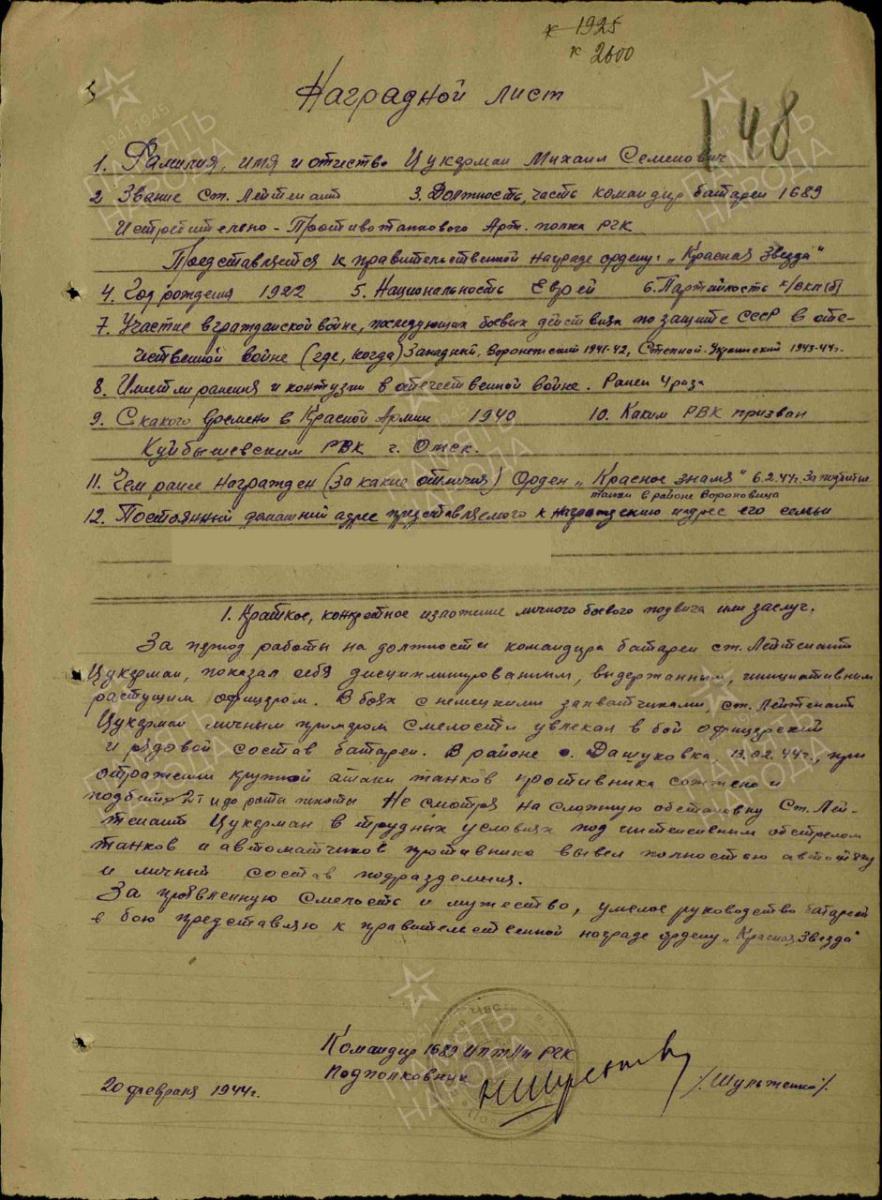 к 1925
к 2600
148
Наградной лист
1. Фамилия, имя и отчество Цукерман Михаил Семенович
2 Звание Ст. Лейтенант 3. Должность, часть командир батареи 1689
Истребительно - Противотанкового Арт. полка РГК
Представляется к правительственной награде ордену: „Красная Звезда"
4. Год рождения 1922 5. Национальность Еврей 6. Партийность к/вкп(б)
7. Участие в гражданской войне, последующих боевых действиях по защите СССР в оте-
чественной войне (где, когда) Западный, Воронежский 1941-42, Степной-Украинский 1943-44г.
8. Имеет ли ранения и контузии в отечественной войне. Ранен 4 раза
9. С какого времени в Красной Армии 1940 10. Каким РВК призван
Куйбышевским РВК г. Омск.
11. Чем ранее награжден (за какие отличия) Орден „Красное знамя" 6.2.44г. За подбитые
танки в районе Вороновица
12. Постоянный домашний адрес представляемого к награждению и адрес его семьи
1. Краткое, конкретное изложение личного боевого подвига или заслуг.
За период работы на должности командира батареи ст. Лейтенант
Цукерман, показал себя дисциплинированным, выдержанным, инициативным
растущим офицером. В боях с немецкими захватчиками, ст. Лейтенант
Цукерман личным примером смелости увлекал в бой офицерский
и рядовой состав батареи. В районе с. Дашуковка, 13.02.44г., при
отражении крупной атаки танков противника сожжено и
подбито 2т и до роты пехоты Не смотря на сложную обстановку Ст. Лей-
тенант Цукерман в трудных условиях под интенсивным обстрелом
танков и автоматчиков противника вывел полностью
и личный состав подразделения.
За проявленную смелость и мужество, умелое руководство батареей
в бою представляю к правительственной награде ордену „Красная Звезда"
Командир 1689 ИПТАП РГК
Подполковник
/Шульженко/
20 февраля 1944г.
ПАМЯТЬ НАРОДА
1941-1945